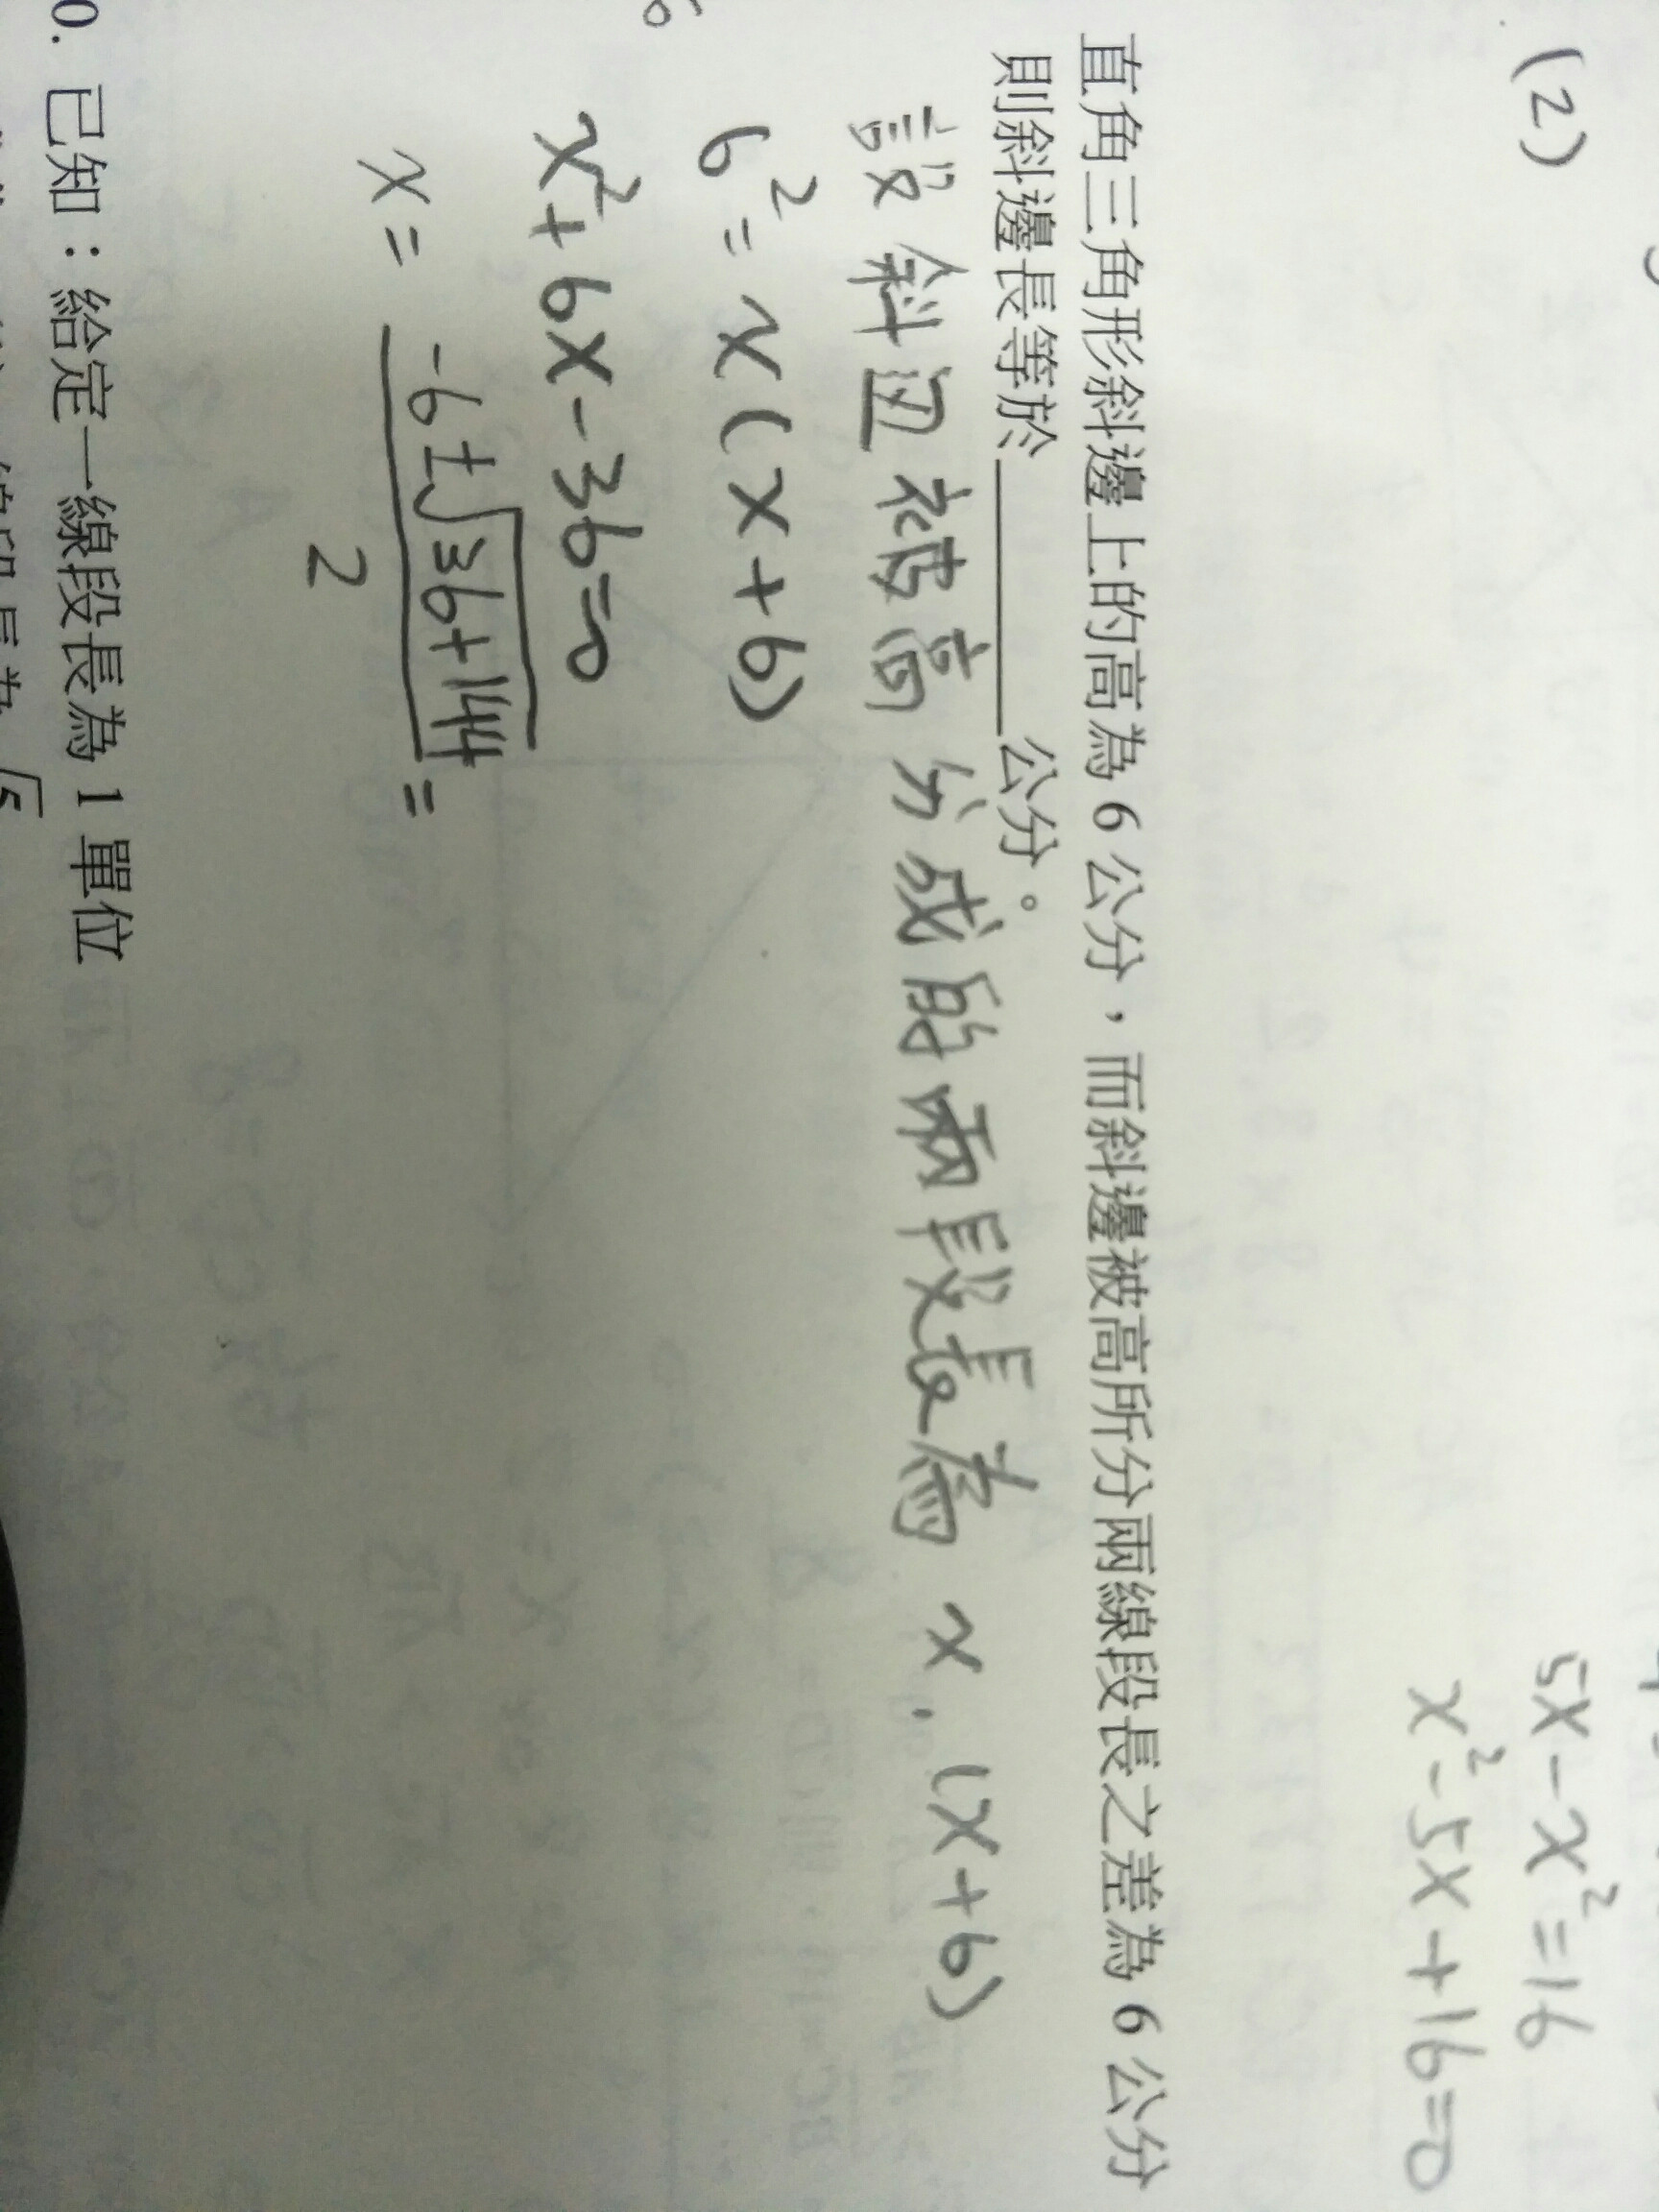 (2)
5x-x²=16
x²-5x+16=0
直角三角形斜邊上的高為 6 公分，而斜邊被高所分兩線段長之差為 6 公分
則斜邊長等於________公分。
設斜边被高分成的兩段長為 x,(x+6)
6²=x(x+6)
x²+6x-36=0
x= -6±√36+144 =
2
0. 已知：給定一線段長為 1 單位
√5